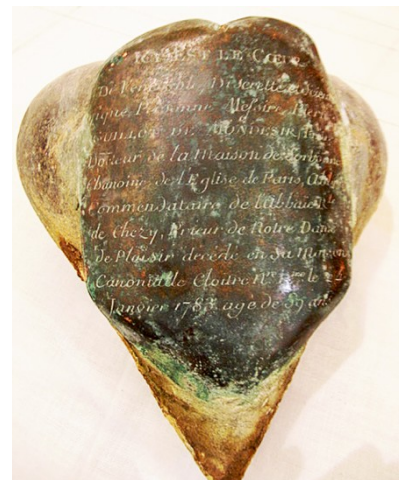 ICY EST LE CŒUR
De Vénérable, Discrette
Personne Messire
GUILLOT DE MONDESIR
Docteur de la Maison de Sorbonne
Chanoine de l'Eglise de Paris,
Commendataire de l'Abbaie
de Chezy, Prieur de Notre Dame
de Plaisir décédé en sa Maison
Canoniale Cloitre Nre Dme le
Janvier 178 age de 59 ans